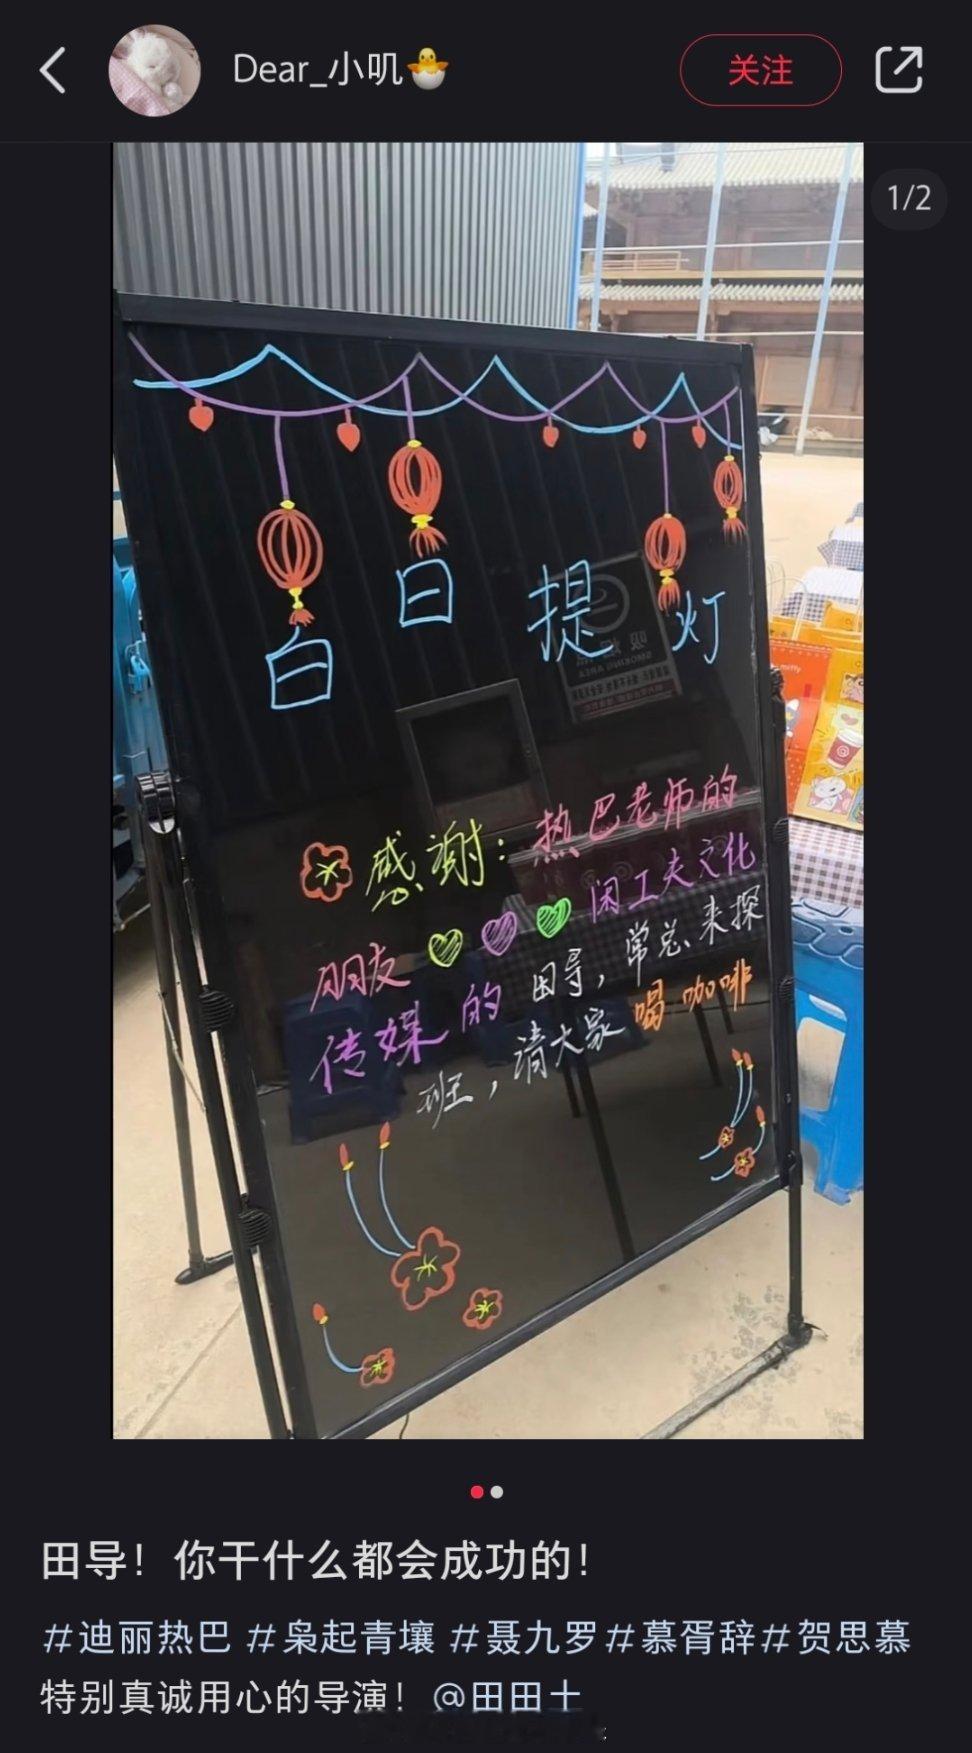 Dear_小叽🐣
关注
1/2
白日提灯
感谢：热巴老师的
朋友 闲工夫文化
传媒的 田导，常总来探
班，请大家喝咖啡
SMOKING AREA
miffy
田导！你干什么都会成功的！
#迪丽热巴 #枭起青壤 #聂九罗#慕胥辞#贺思慕
特别真诚用心的导演！@田田土